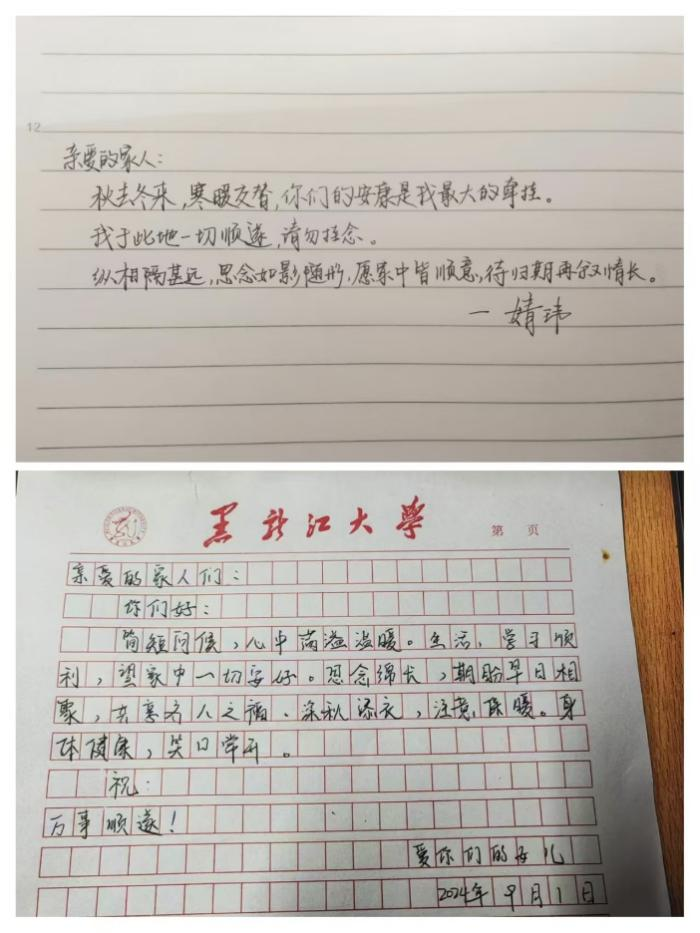 12
亲爱的家人：
秋去冬来，寒暖交替，你们的安康是我最大的牵挂。
我于此地一切顺遂，请勿挂念。
纵相隔甚远，思念如影随形，愿家中皆顺意，待归期再叙情长。
一婧玮
黑龙江大学 第 页
亲爱的家人们：
你们好：
简短问候，心中满溢温暖。生活、学习顺
利，望家中一切安好。思念绵长，期盼早日相
聚，共享齐人之福。深秋添衣，注意保暖。身
体健康，笑口常开。
祝：
万事顺遂！
爱你们的女儿
2024年9月1日